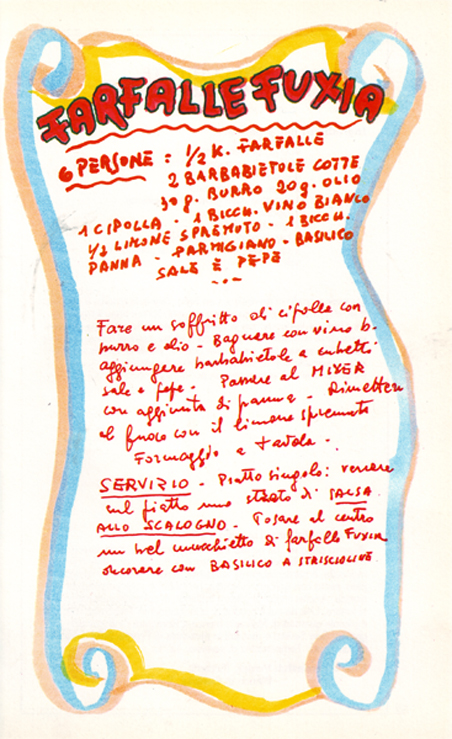 FARFALLE FUXIA
6 PERSONE : 1/2 K. FARFALLE
2 BARBABIETOLE COTTE
30 g. BURRO 20 g. OLIO
1 CIPOLLA - 1 BICCH. VINO BIANCO
1/2 LIMONE SPREMUTO - 1 BICCH.
PANNA - PARMIGIANO - BASILICO
SALE E PEPE
Fare un soffritto di cipolla con
burro e olio - Bagnare con vino b.
aggiungere barbabietole a cubetti
sale e pepe - Passare al MIXER
con aggiunta di panna - Rimettere
al fuoco con il limone spremuto
Formaggio a tavola -
SERVIZIO - Piatto singolo: versare
sul piatto uno strato di SALSA
ALLO SCALOGNO - Posare al centro
un bel mucchietto di farfalle FUXIA
decorare con BASILICO A STRISCIOLINE